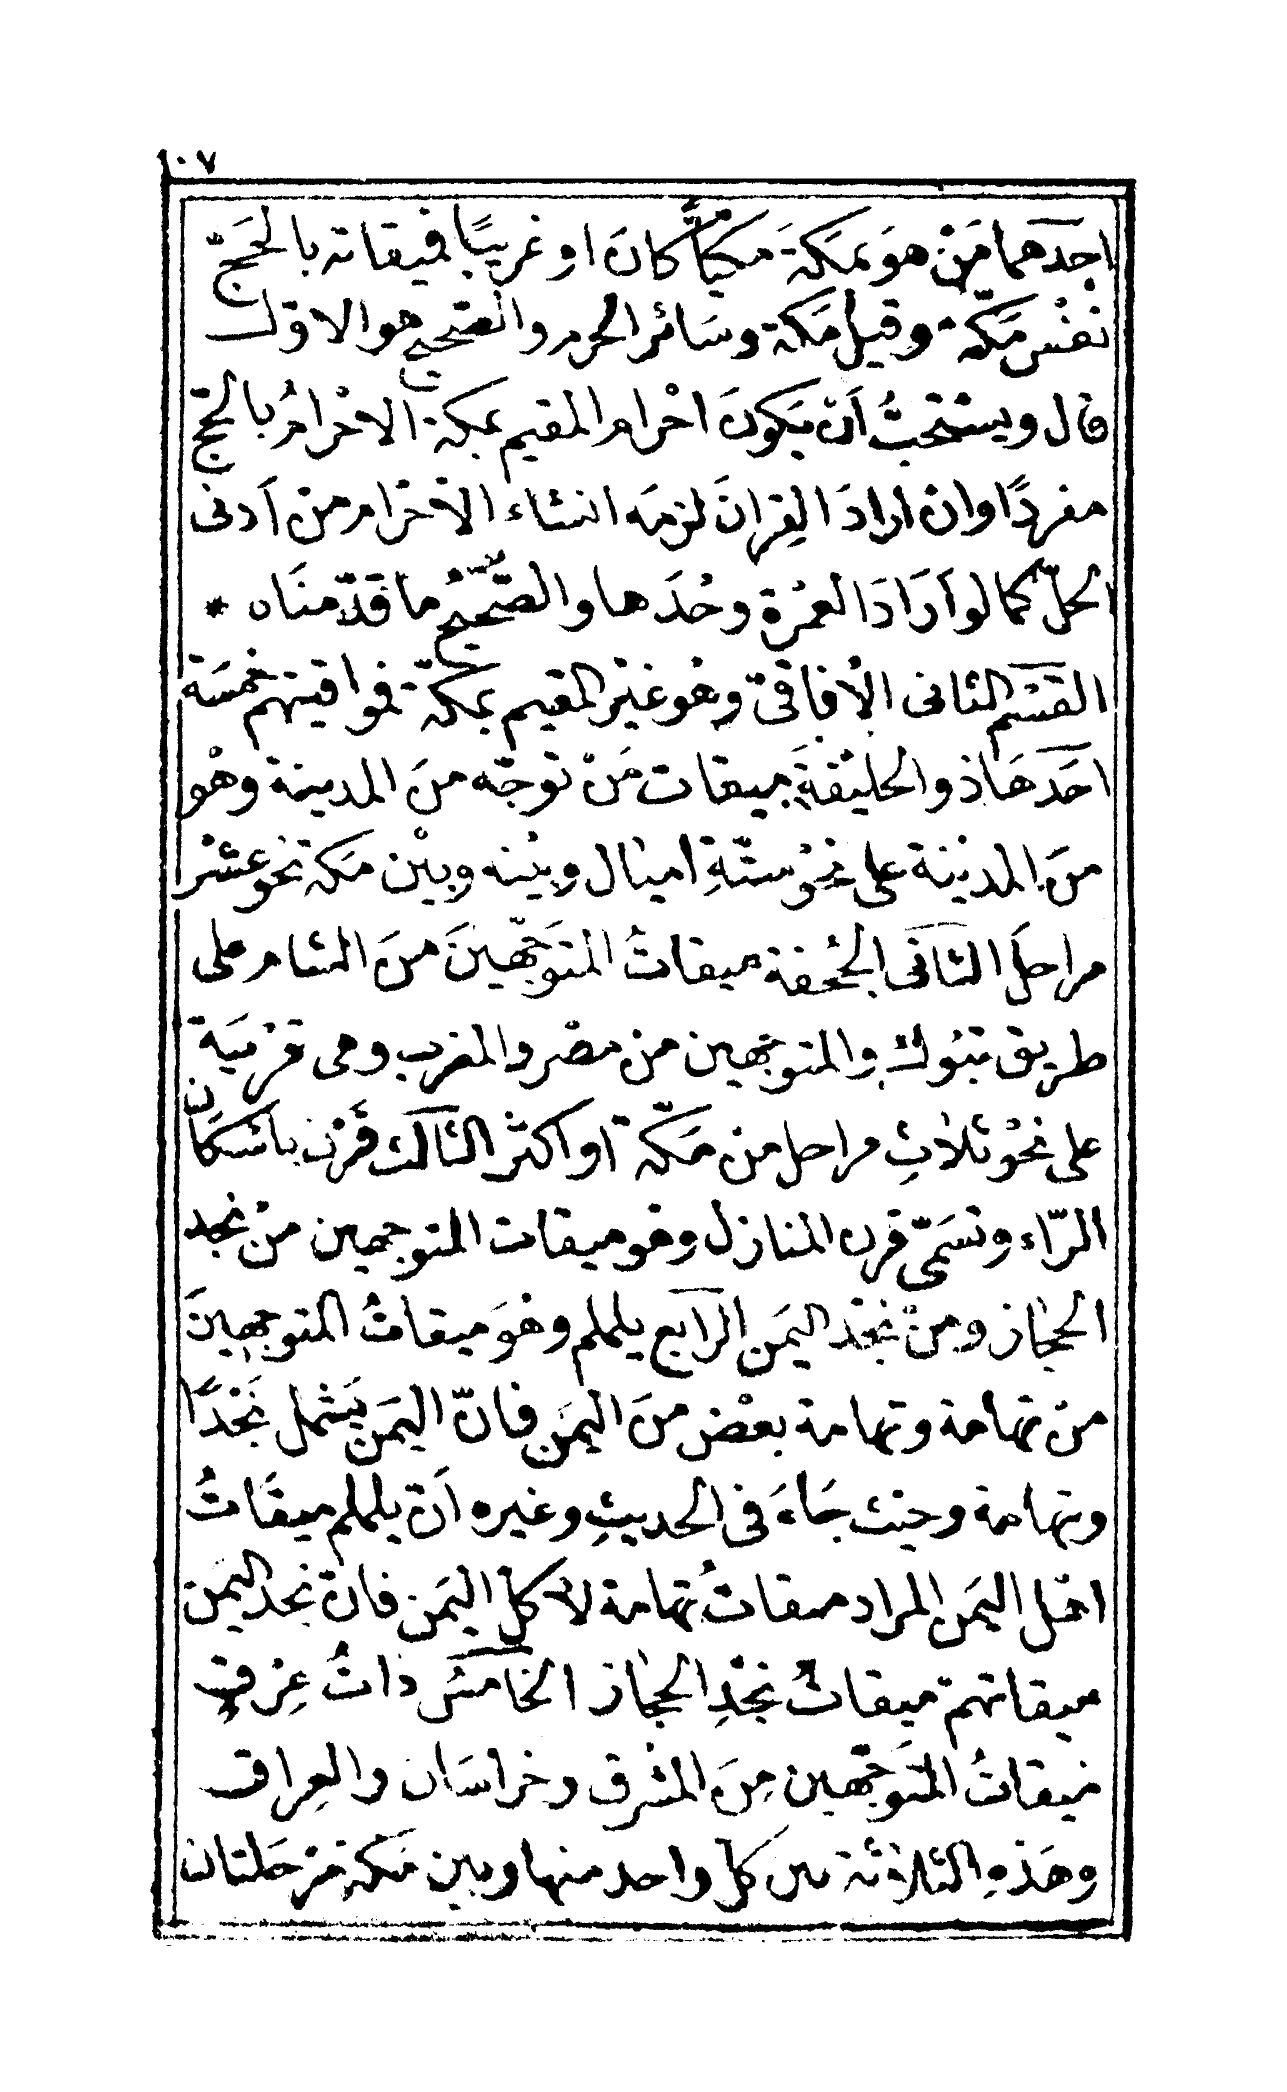 ١٠٧
احدهما مَنْ هوَ بمكةَ مكيًّا كانَ اوِ غريبًا فميقاته بالحَجّ
نفسْ مَكّة وقيل مَكة وسَائر الحرم والصحيح هو الاوّل
قال ويستحبُّ أن يَكونَ احْرام المقيم بمكة الاحْرامُ بالحجّ
مفردًا وان ارادَ القِرانَ لزمَه انشاء الاحْرام من اَدنى
الحلّ كما لو اَرَادَ العمُرة وحْدَها والصّحيحُ ما قدّمنَاه *
القسْم الثانى الأفاقىّ وهو غيْر المقيم بمكّة فمواقيتهم خمسَة
احَدهَا ذو الحليْفةَ ميقات مَنْ توجّه منَ المدينة وهْو
منَ المديْنة على نحْو ستّةِ اميَال وبيْنه وبيْن مَكة نحْو عشْر
مراحلَ الثانى الجُحفة ميقاتُ المتوَجّهينَ منَ الشام على
طريق تبُوك والمتوجّهين من مصْر والمغرب وهى قرْيَة
على نحْو ثلاثِ مراحل من مَكّة او اكثر الثالث قَرْن باسْكان
الرّاء وتسَمّى قرن المنازل وهو ميقات المتوجهين منْ نجد
الحجاز ومنْ نجْد اليمَن الرابع يلملم وهْوَ ميقاتُ المتوجهينَ
منْ تهامة وتهامة بعْض منَ اليمَن فانّ اليمَن يَشمل نَجْدًا
وتهامة وحيْث جَاءَ فى الحديثِ وغيره اَنّ يلملم ميقَاتُ
اهْل اليمَن المراد ميقاتُ تهامة لا كلّ اليمَن فانّ نجد اليمن
ميقاتهمْ ميقاتُ نجْدِ الحجاز الخامسُ ذاتُ عِرْق
ميقاتُ المتَوجّهين مِنَ المشرق وخراسَان والعِراق
وهَذهِ الثلاثة بين كلّ واحد منها وبين مَكة مرْحَلتان